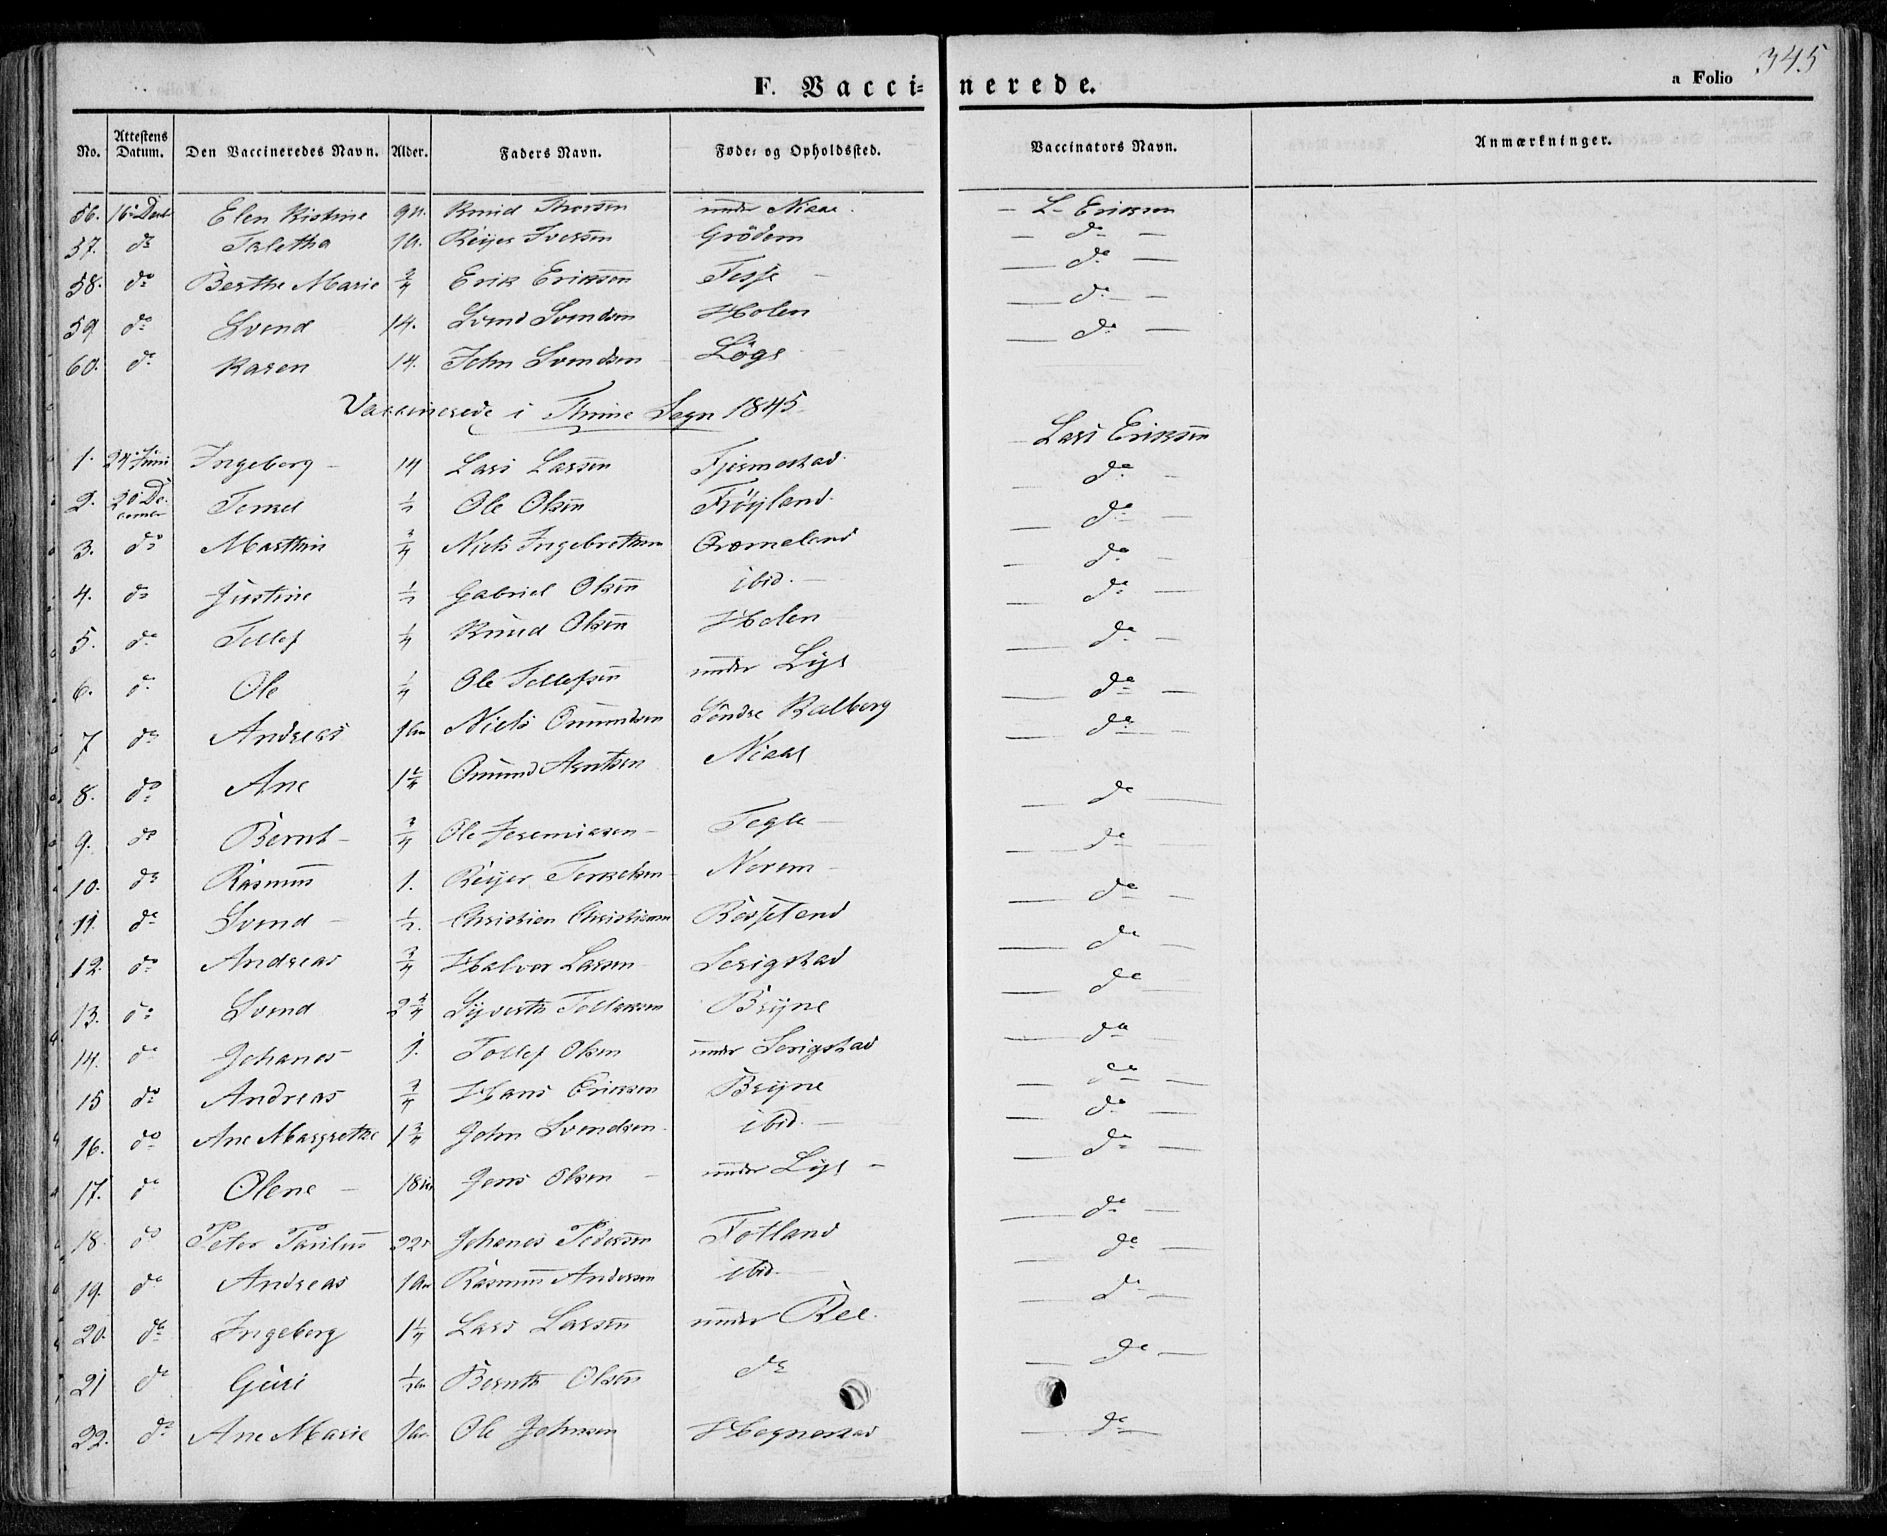 345
F. Vaccinerede. a Folio
No. Attestens Datum. Den Vaccineredes Navn. Alder. Faders Navn. Føde- og Opholdssted. Vaccinators Navn. Anmærkninger.
56. 16. Decb Elen Kistine Knud Thorsen under Niaae. — L. Eriksen
57. do Taletha Reijer Iversen Grödem — do —
58. do Berthe Marie 3/4 Erik Eriksen Fosse — — do —
59 do Svend 14. Svend Svendsen Holen — do —
60. do Karen 14. John Svendsen Löge — do —
Vaccinerede i Thime Sogn 1845.
1. 24. Juni Ingeborg — 14 Lars Larsen Fjermestad. — Lars Eriksen
2. 20 December Tonnes 1/2 Ole Olsen Fröyland. — do —
3. do Marthin 3/4 Niels Ingebrethsen Qvorneland — do —
4. do Justine 1/2 Gabriel Olsen ibid. — — do —
5. do Tollef 1/4 Knud Olsen Holen — do —
6. do Ole 1/4 Ole Tollefsen under Lye — do —
7 do Andreas Niels Omundsen Söndre Kalberg — do —
8. do Ane Omund Arntsen Niaae — do —
9. do Bernt — 3/4 Ole Jeremiasen — Tegle — — do —
10. do Rasmus 1. Reijer Torkelsen Norem — — do —
11. do Svend — 1/2. Christian Christiansen — do —
12. do Andreas 3/4 Halvor Larsen Serigstad — do —
13. do Svend 2 3/4 Syverth Tollaksen Bryne — do —
14. do Johanes 1. Tollef Olsen under Serigstad — do —
15 do Andreas 3/4 Hans Eriksen Bryne — do —
16. do Ane Margrethe 1 3/4 John Svendsen. ibid. — — do —
17. do Olene — Jens Olsen — under Lye — — do —
18. do Peter Paulus Johanes Pedersen Fotland — do —
19. do Andreas Rasmus Andersen ibid. — do —
20. do Ingeborg 1 1/4 Lars Larsen under Ree. — do —
21 do Guri Bernth Olsen do — do —
22. do Ane Marie Ole Johnsen Hognestad — do —